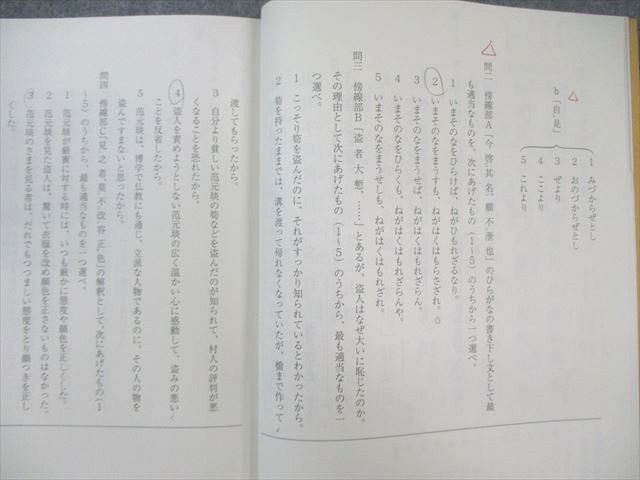 b「自見」
1 みづからぜとし
2 おのづからぜとし
3 ぜより
4 ここより
5 これより
問二 傍線部A「今啓其名、願不泄也」のひらがなの書き下し文として最
も適当なものを、次にあげたもの(1~5)のうちから一つ選べ。
1 いまそのなをひらけば、ねがひもれざるなり。
2 いまそのなをまうすも、ねがはくはもらさざれ。
3 いまそのなをまうせば、ねがはくはもれざらん。
4 いまそのなをひらくも、ねがはくはもれざらんや。
5 いまそのなをまうせしも、ねがはくはもれざれ。
問三 傍線部B「盗者大慙、……」とあるが、盗人はなぜ大いに恥じたのか。
その理由として次にあげたもの(1~5)のうちから、最も適当なものを一
つ選べ。
1 こっそり筍を盗んだのに、それがすっかり知られているとわかったから。
2 筍を持ったままでは、溝を渡って帰れなくなっていたが、橋まで作って
渡してもらったから。
3 自分より貧しい范元琰の筍などを盗んだのが知られて、村人の評判が悪
くなることを恐れたから。
4 盗人を責めようとしない范元琰の広く温かい心に感動して、盗みの悪い
ことを反省したから。
5 范元琰は、博学で仏教にも通じ、立派な人物であるのに、その人の物を
盗んですまないと思ったから。
問四 傍線部C「見之者、莫不改容正色」の解釈として、次にあげたもの(1
~5)のうちから、最も適当なものを一つ選べ。
1 范元琰が厳賓に対する時には、いつも厳かに態度や顔色を正しくした。
2 范元琰を見た盗人は、驚いて衣服を改め顔色を正さないものはなかった。
3 范元琰のさまを見る者は、だれでもつつましい態度をとり顔つきを正し
くした。